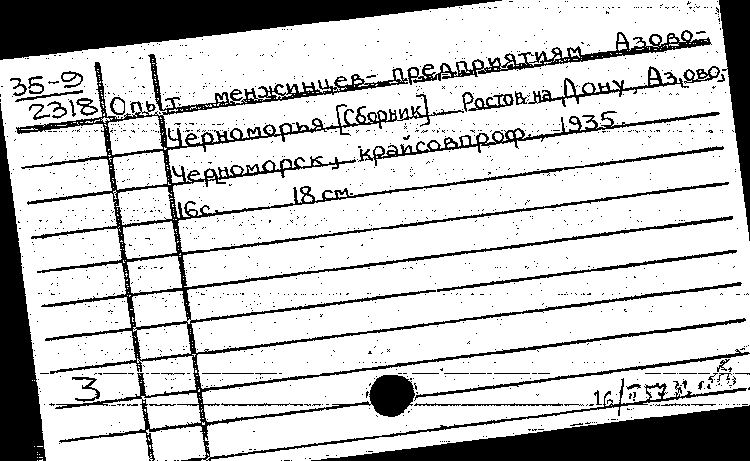 35-9
2318 Опыт менжинцев - предприятиям Азово-
Черноморья [Сборник]. Ростов на Дону, Азово-
Черноморск, крайсовпроф., 1935.
16 с. 18 см.
3
16/II 57